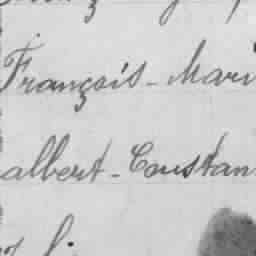 François - Mari
albert - Constan